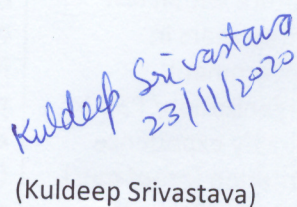 Kuldeep Srivastava
23/11/2020
(Kuldeep Srivastava)